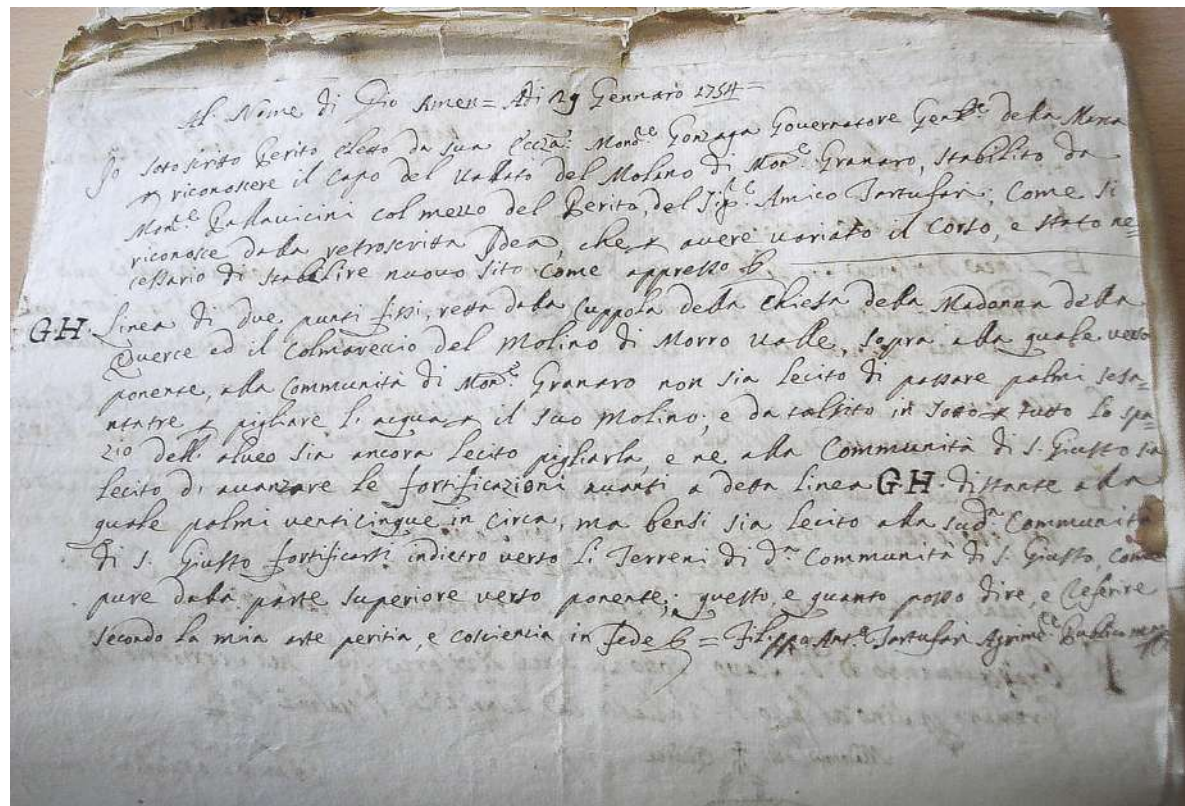 Al Nome di Dio Amen = Adi 29 Gennaro 1754 =
Io sotoscritto Perito eletto da sua Ecc.za Mons.e Gonzaga Governatore Gen.le della Marca
riconoscere il capo del Vallato del Molano di Mon.e Granaro, stabilito da
Mons.e Pallavicini col mezzo del Perito, del Sig.r Amico Tartufari; Come si
riconosce dalla retroscritta Idea, che avere variato il Corso, e stato ne=
cessario di stabilire nuovo sito come appresso
GH Linea di due punti fissi, retta dalla Cuppola della Chiesa della Madonna della
Querce ed il Colmareccio del Molino di Morro Valle, sopra alla quale verso
ponente, alla Communità di Mon.e Granaro non sia lecito di passare palmi sesa=
ntatre pigliare l'acqua il suo Molino; e da in sotto tutto lo spa=
zio dell'alveo sia ancora lecito pigliarla, e ne alla Communità di S. Giusto sia
lecito di avanzare le fortificazioni avanti a detta linea GH. distante alla
quale palmi venticinque in circa, ma bensi sia lecito alla sud.a Communità
di S. Giusto fortificarsi indietro verso li Terreni di d.a Communità di S. Giusto, come
pure dalla parte superiore verso ponente; questo, e quanto posso dire, e referire
secondo la mia arte peritia, e coscienza in fede = Filippo Ant.o Tartufari Agrim.re Publico